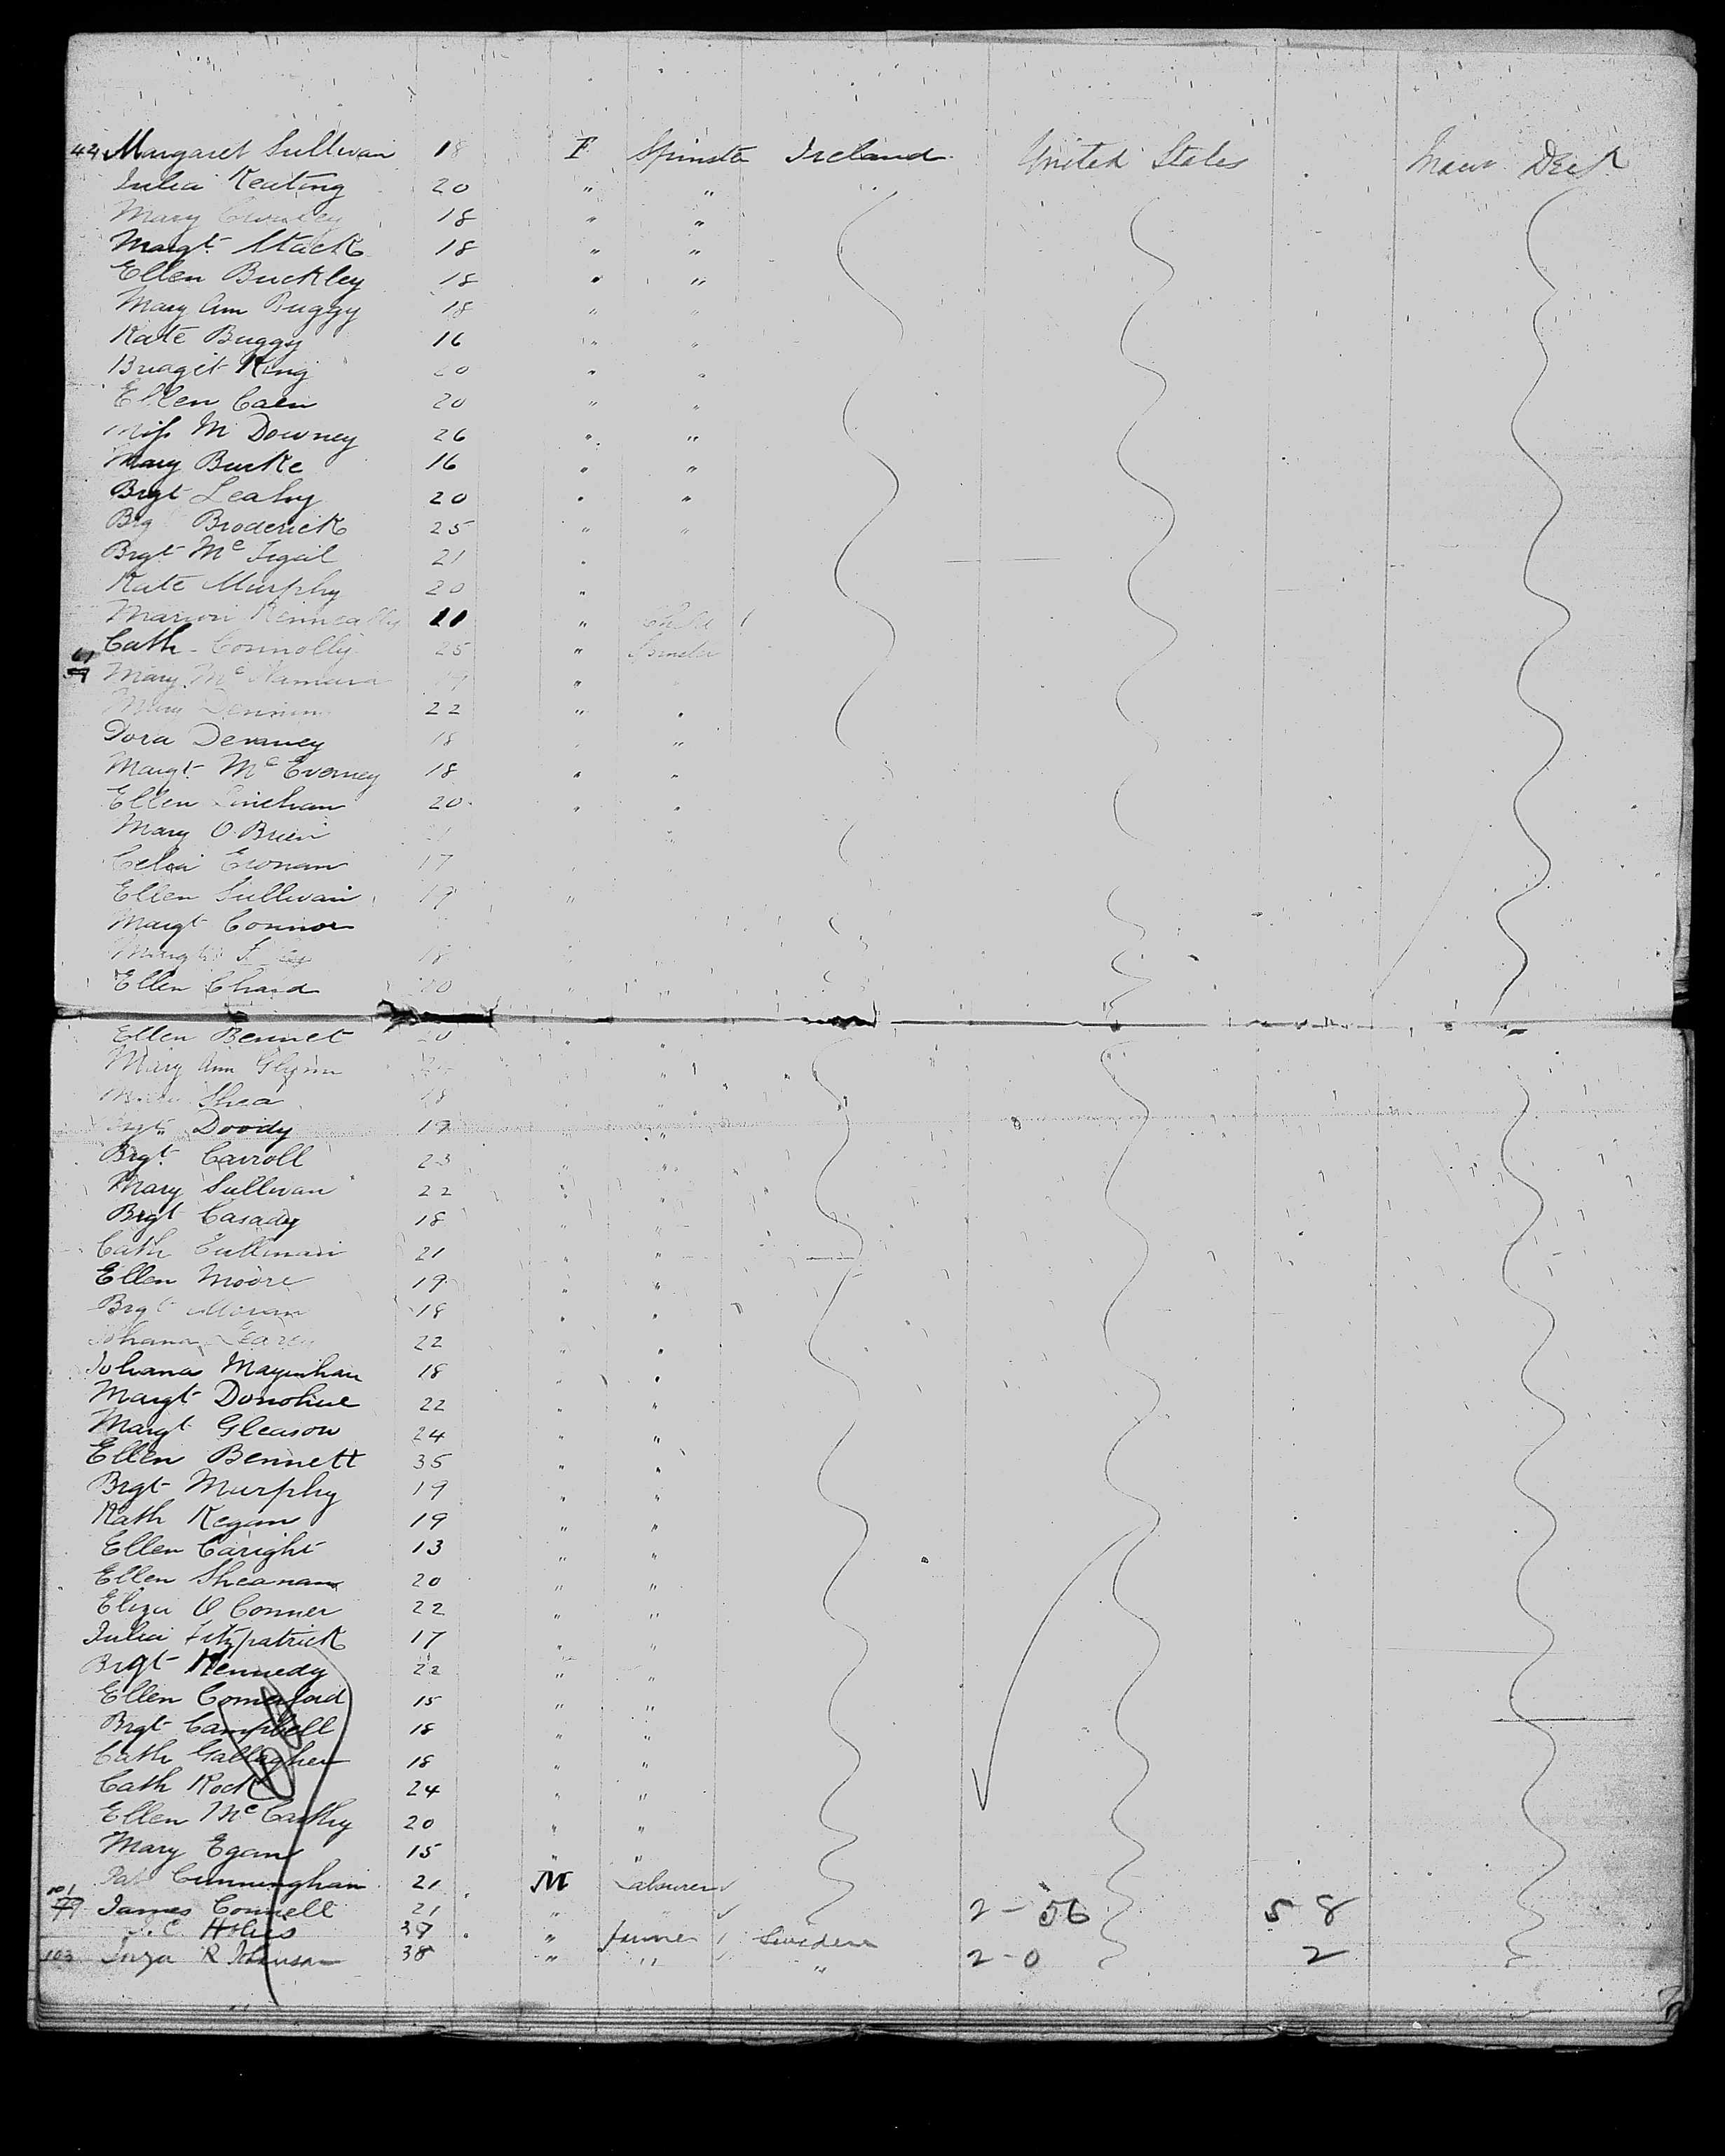 44 Margaret Sullivan 18 F Spinster Ireland United States Main Deck
Julia Keating 20 " "
Mary 18 " "
Margt Stack 18 " "
Ellen Buckley 18 " "
Mary Ann Buggy 18 " "
Kate Buggy 16 " "
Bridgit King 20 " "
Ellen Cain 20 " "
Miss M Downey 26 " "
Mary Burke 16 " "
Brgt Leahy 20 " "
Brg Broderick 25 " "
Brgt Mc 21 "
Kate Murphy 20 "
Marion Kenneally "  Child
Cath Connolly 25 " Spinster
Mary McNamara "
Mary 22 " "
Dora 18 " "
Margt Mc Everney 18 " "
Ellen Linehan 20 " "
Mary O Brien
Celia Cronan 17
Ellen Sullivan 19 "
Margt Connor
Margt 18
Ellen Chard
Ellen Bennet 20 " "
Mary Ann Glynn " "
Shea 18 " "
Doody 19 "
Brgt Carroll 23 " "
Mary Sullivan 22 " "
Brgt Casady 18 " "
Cath 21 " "
Ellen Moore 19 " "
Brgt Moran 18 " "
Johana Leary 22 " "
Johana Maynihan 18 " "
Margt Donohue 22 " "
Margt Gleason 24 " "
Ellen Bennett 35 " "
Brgt Murphy 19 " "
Kath Kegan 19 " "
Ellen Caright 13 " "
Ellen Sheanan 20 " "
Eliza O Conner 22 " "
Julia Fitzpatrick 17 " "
Brgt Kennedy 22 " "
Ellen Comerford 15 " "
Brgt Campbell 18 " "
Cath Gallagher 18 " "
Cath Rock 24 " "
Ellen McCarthy 20 " "
Mary Egan 15 " "
Pat Cunningham 21 M Labourer
101 James Connell 21 " 2 - 56 58
J. C. 39 " Farmer Sweden
103 R Johnson 38 " " " 2 - 0 2